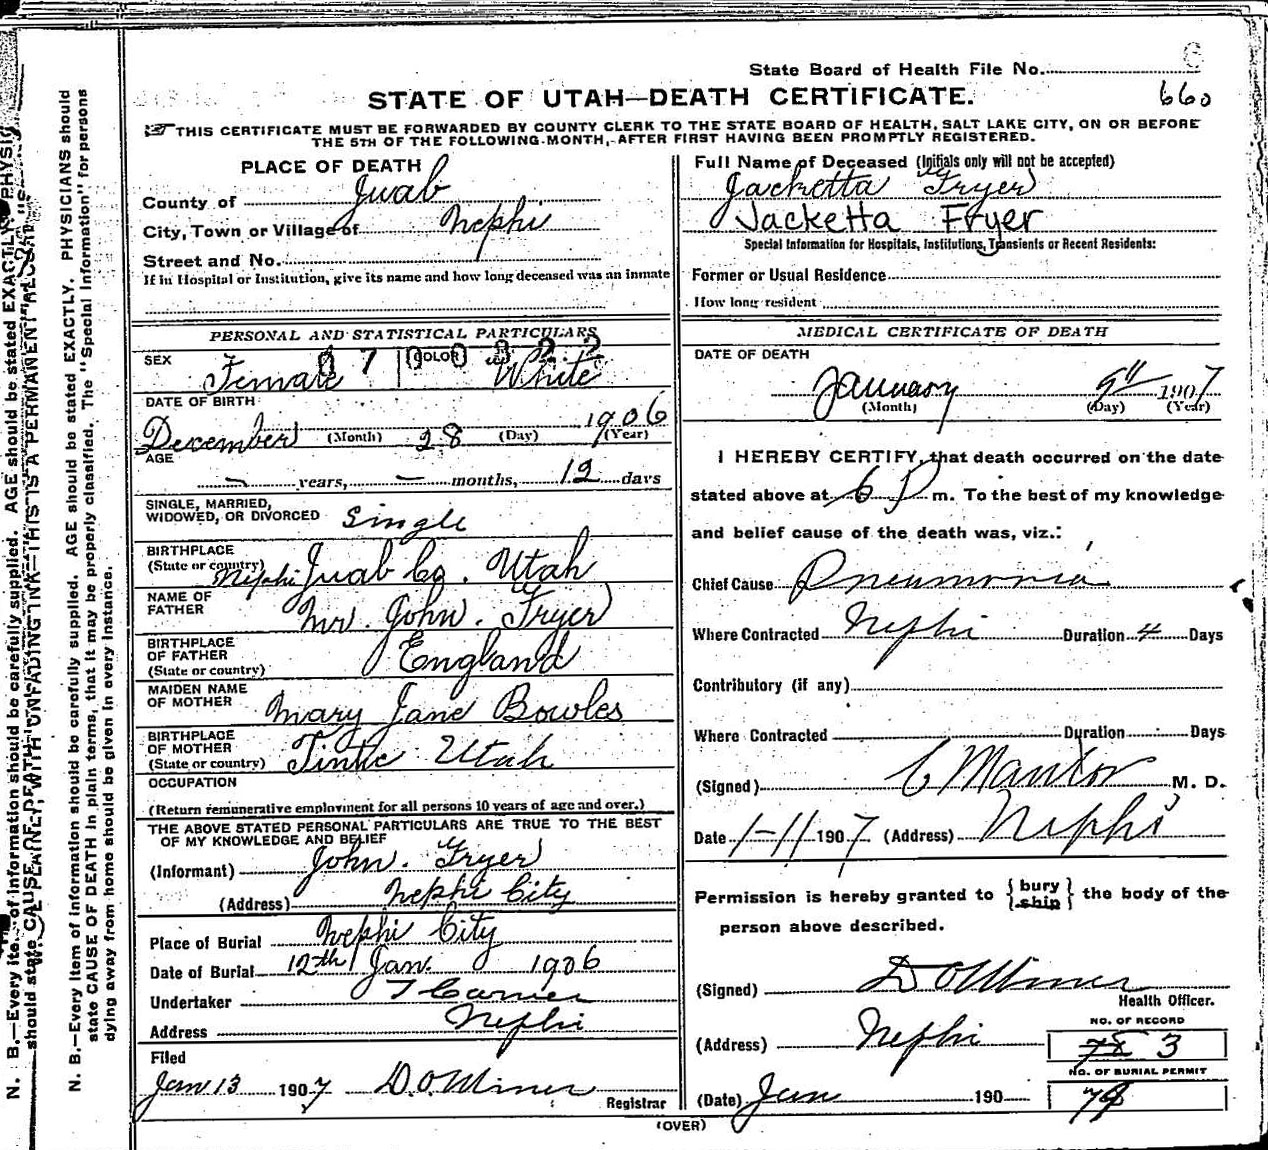 State Board of Health File No.
STATE OF UTAH—DEATH CERTIFICATE.
660
THIS CERTIFICATE MUST BE FORWARDED BY COUNTY CLERK TO THE STATE BOARD OF HEALTH, SALT LAKE CITY, ON OR BEFORE
THE 5TH OF THE FOLLOWING MONTH, AFTER FIRST HAVING BEEN PROMPTLY REGISTERED.
PLACE OF DEATH
County of Juab
City, Town or Village of Nephi
Street and No.
If in Hospital or Institution, give its name and how long deceased was an inmate
Full Name of Deceased (Initials only will not be accepted)
Jacketta Fryer
Jacketta Fryer
Special Information for Hospitals, Institutions, Transients or Recent Residents:
Former or Usual Residence
How long resident
PERSONAL AND STATISTICAL PARTICULARS
SEX Female COLOR White
DATE OF BIRTH
December (Month) 28 (Day) 1906 (Year)
AGE
— years, — months, 12 days
SINGLE, MARRIED,
WIDOWED, OR DIVORCED Single
BIRTHPLACE
(State or country) Nephi Juab Co. Utah
NAME OF
FATHER Mr. John. Fryer
BIRTHPLACE
OF FATHER England
(State or country)
MAIDEN NAME
OF MOTHER Mary Jane Bowles
BIRTHPLACE
OF MOTHER
(State or country) Tintic Utah
OCCUPATION
(Return remunerative employment for all persons 10 years of age and over.)
THE ABOVE STATED PERSONAL PARTICULARS ARE TRUE TO THE BEST
OF MY KNOWLEDGE AND BELIEF
(Informant) John. Fryer
(Address) Nephi City
Place of Burial Nephi City
Date of Burial 12th Jan. 1906
Undertaker
Address Nephi
Filed
Jan 13 1907 D. O. Miner
Registrar
MEDICAL CERTIFICATE OF DEATH
DATE OF DEATH
January 9th 1907
(Month) (Day) (Year)
I HEREBY CERTIFY, that death occurred on the date
stated above at 6 P m. To the best of my knowledge
and belief cause of the death was, viz.:
Chief Cause Pneumonia
Where Contracted Nephi Duration 4 Days
Contributory (if any)
Where Contracted Duration Days
(Signed) M. D.
Date 1-11 1907 (Address) Nephi
Permission is hereby granted to { bury ship } the body of the
person above described.
(Signed) D O Miner
Health Officer.
(Address) Nephi
NO. OF RECORD
78 3
NO. OF BURIAL PERMIT
(Date) Jan 190
(OVER)
N. B.—Every item of information should be carefully supplied. AGE should be stated EXACTLY. PHYSICIANS should
state CAUSE OF DEATH in plain terms, that it may be properly classified. The "Special Information" for persons
dying away from home should be given in every instance.